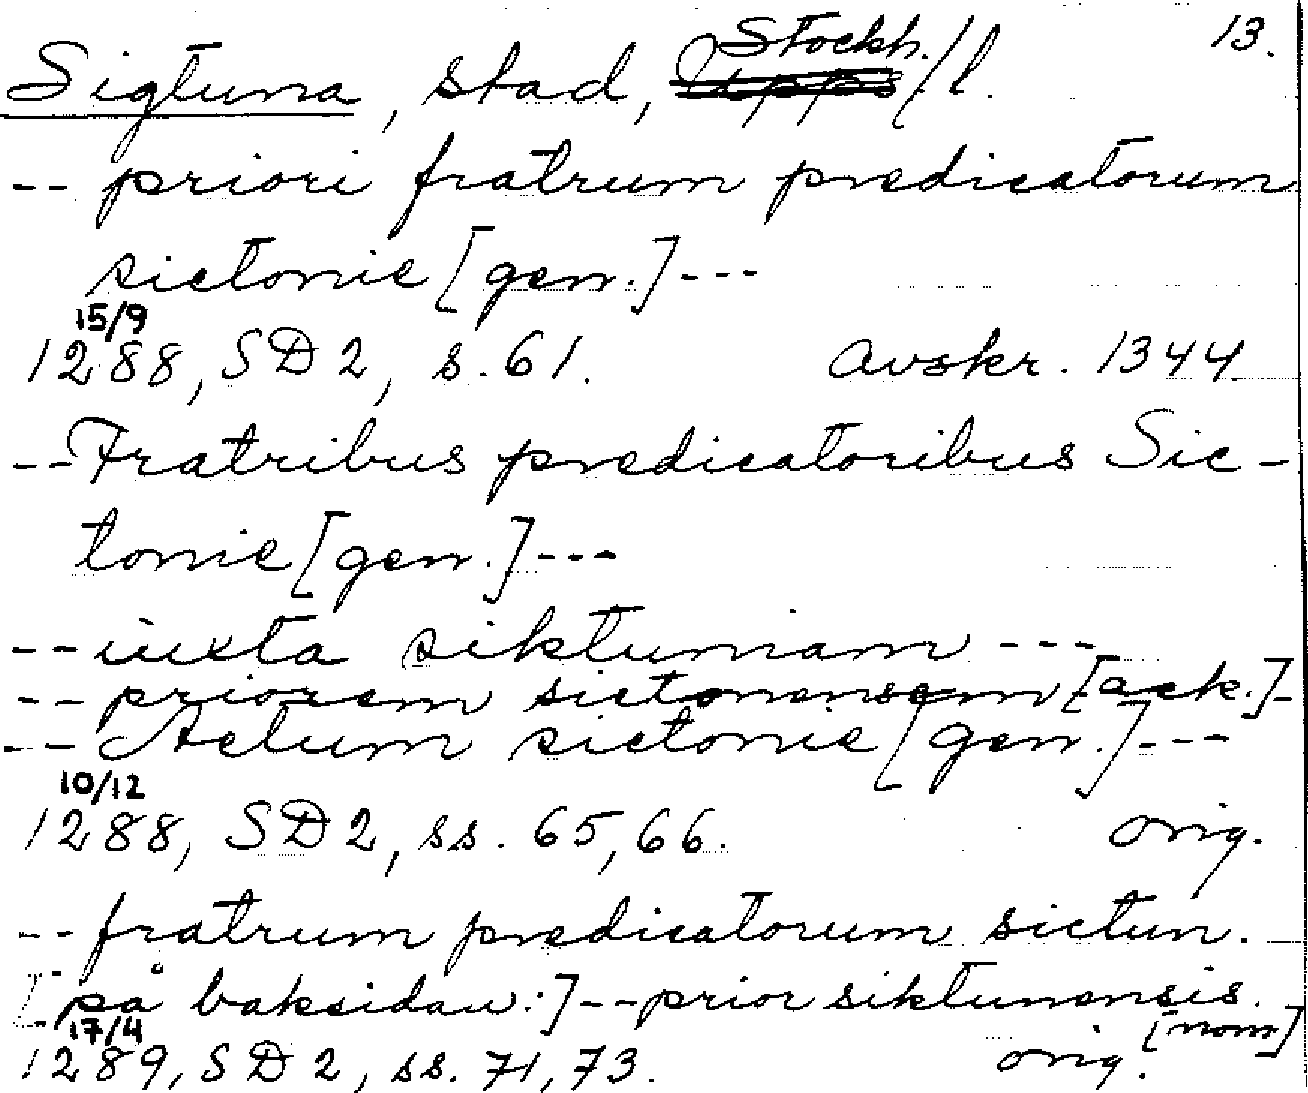 13.
Sigtuna, stad, Stockh./l.
-- priori fratrum predicatorum
sictonie [gen.]---
15/9
1288, SD 2, s. 61. avskr. 1344
-- Fratribus predicatoribus Sic-
tonie [gen.]---
-- iuxta siktuniam ---
-- priorem sictonensem [ack.]-
-- Actum sictonie [gen.]---
10/12
1288, SD 2, ss. 65, 66. orig.
-- fratrum predicatorum sictun.
[på baksidan:]--prior siktunensis.
[nom]
17/4
1289, SD 2, ss. 71, 73. orig.